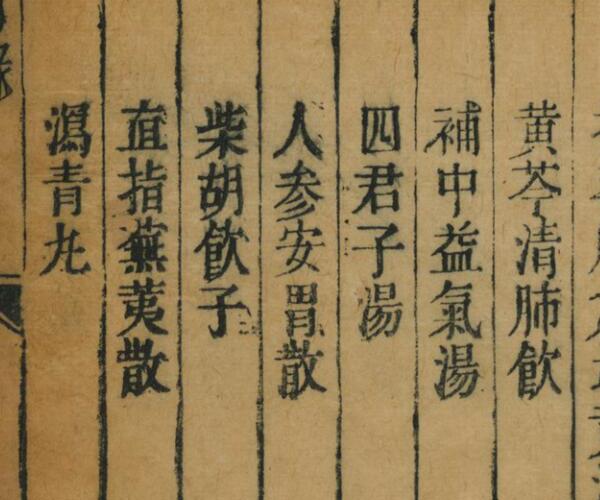 黄芩清肺飲
補中益氣湯
四君子湯
人参安胃散
柴胡飲子
直指蕪荑散
潟青丸